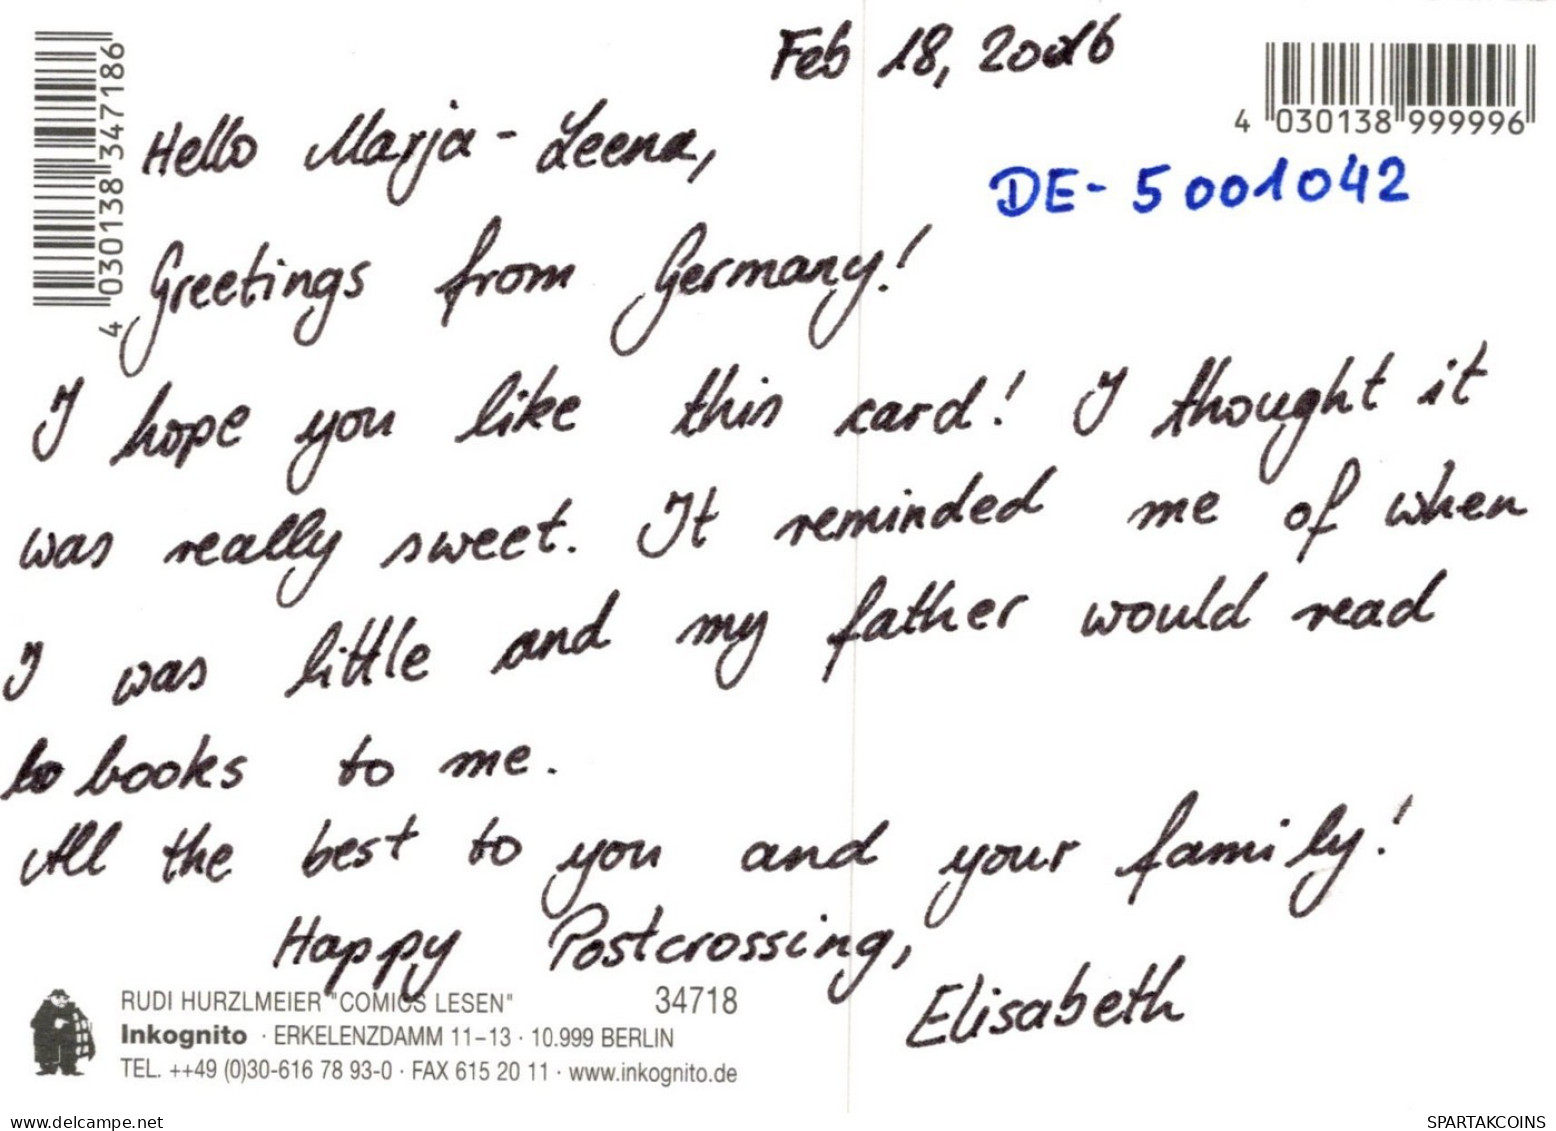 Feb 18, 2016
4 030138 347186
4 030138 999996
Hello Marja-Leena,
DE-5001042
Greetings from Germany!
I hope you like this card! I thought it
was really sweet. It reminded me of when
I was little and my father would read
books to me.
All the best to you and your family!
Happy Postcrossing,
Elisabeth
RUDI HURZLMEIER "COMICS LESEN" 34718
Inkognito · ERKELENZDAMM 11–13 · 10.999 BERLIN
TEL. ++49 (0)30-616 78 93-0 · FAX 615 20 11 · www.inkognito.de
https://www.delcampe.net
SPARTAKCOINS